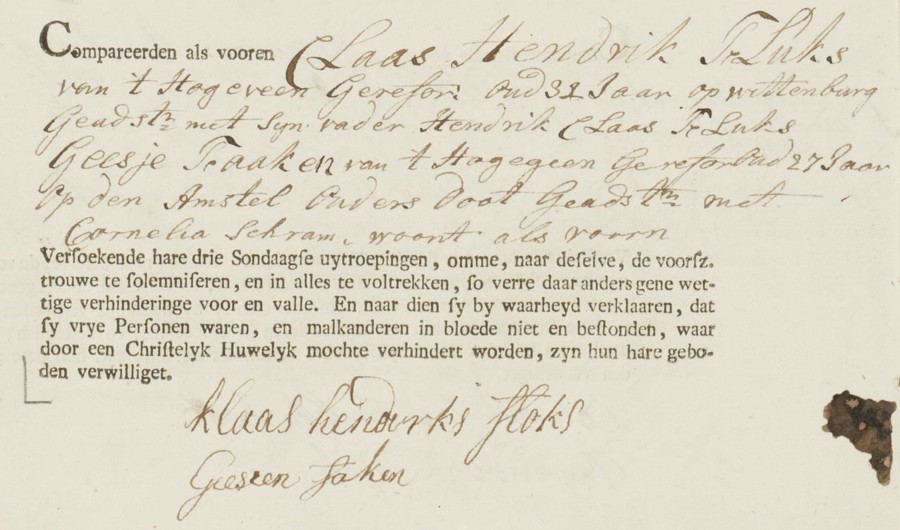 Compareerden als vooren Claas Hendrik Fr Luks
van 't Hogeveen Gerefor: Oud 31 Jaar op wittenburg
Geadstr. met Syn vader Hendrik Claas Fr Luks
Geesje Fraaken van 't Hogegeen Gerefor Oud 27 Jaar
Op den Amstel Ouders Doot Geadstr. met
Cornelia Schram, woont als voorn
Versoekende hare drie Sondaagse uytroepingen, omme, naar deselve, de voorsz.
trouwe te solemniseren, en in alles te voltrekken, so verre daar anders gene wet-
tige verhinderinge voor en valle. En naar dien sy by waarheyd verklaaren, dat
sy vrye Personen waren, en malkanderen in bloede niet en bestonden, waar
door een Christelyk Huwelyk mochte verhindert worden, zyn hun hare gebo-
den verwilliget.
klaas hendrks floks
Geesien faken